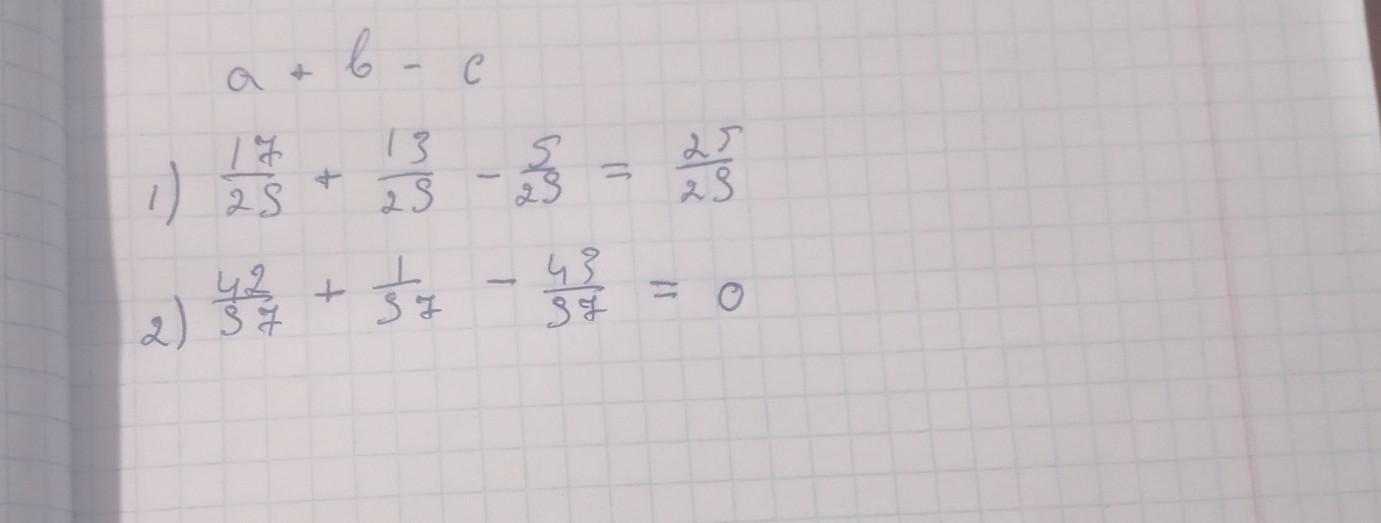 a + b - c
1) 17/29 + 13/29 - 5/29 = 25/29
2) 42/97 + 1/97 - 43/97 = 0